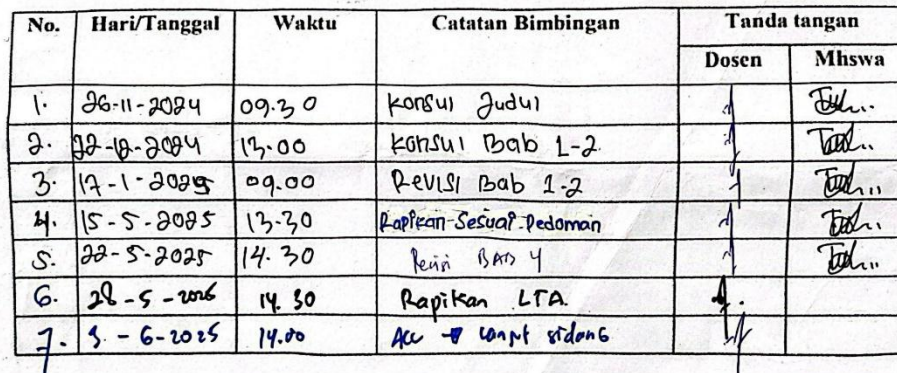 No. Hari/Tanggal Waktu Catatan Bimbingan Tanda tangan
Dosen Mhswa
1. 26-11-2024 09.30 Konsul Judul
2. 12-2024 13.00 Konsul Bab 1-2
3. 17-1-2025 09.00 Revisi Bab 1-2
4. 15-5-2025 13.30 Rapikan Sesuai Pedoman
5. 22-5-2025 14.30 Revisi BAB 4
6. 28-5- 14.30 Rapikan LTA.
7. 3-6-2025 14.00 Acc lanjut sidang